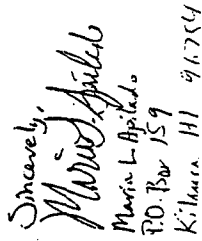 Sincerely,
Maria L. Apilado
Maria L. Apilado
P.O. Box 159
Kilauea HI 96754